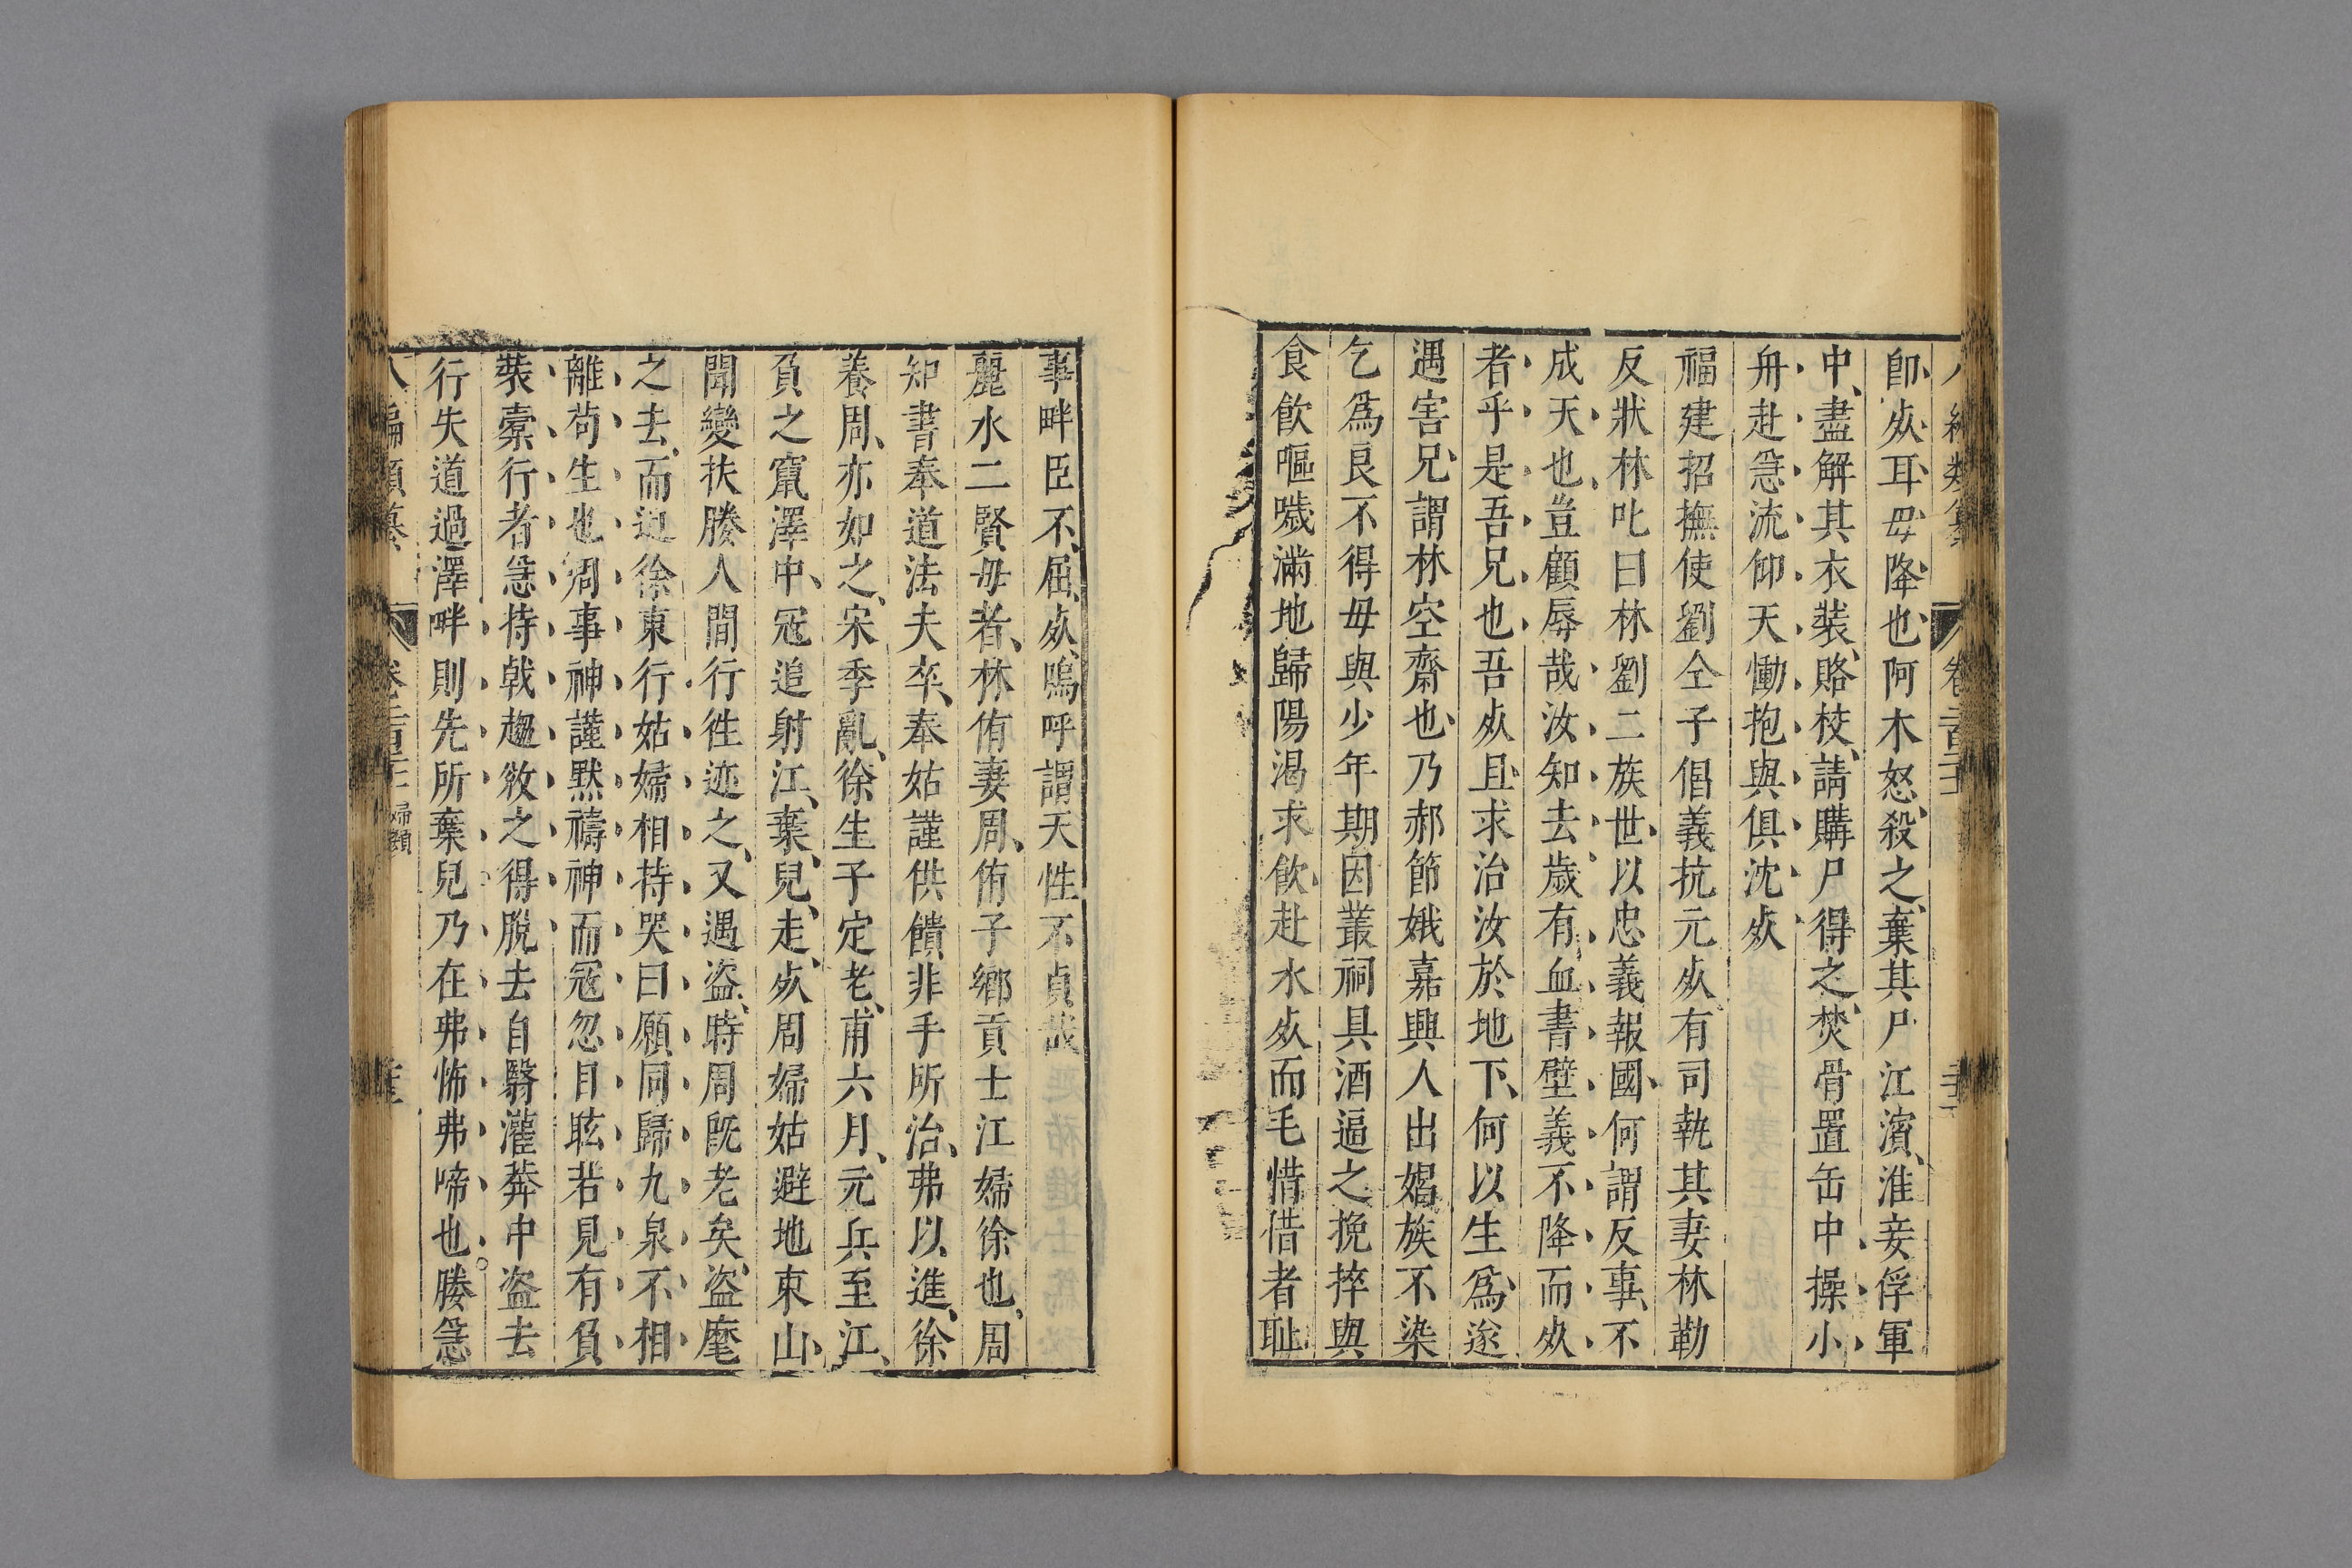 卽、㱕耳、毋降也、阿木怒、殺之、棄其尸江濱、淮妾俘軍
中、盡解其衣裝、賂校、請購尸得之、焚骨置缶中、操小
舟赴急流仰天慟抱與俱沈㱕
福建招撫使劉仝子倡義抗元㱕、有司執其妻林勒
反狀林叱曰林劉二族世、以忠義報國、何謂反事、不
成天也、豈顧辱哉汝知去歲有血書壁義不降而㱕
者乎是吾兄也吾㱕且求治汝於地下、何以生爲、遂
遇害、兄、謂林空齋也、乃郝節娥嘉興人出娼族不染
乞爲良不得毋與少年期因叢祠具酒逼之挽捽與
食飲嘔噦滿地歸陽渴求飲、赴水㱕而毛惜借者耻
事畔臣不、屈、㱕、嗚呼謂天性不貞哉
麗水二賢毋者、林侑妻周、侑子鄉貢士江婦徐也、周
知書奉道法夫卒、奉姑謹供饋非手所治、弗以進、徐
養周、亦如之、宋季亂、徐生子定老、甫六月、元兵至江、
負之竄澤中、冦追射江、棄兒、走、㱕周婦姑避地東山、
聞變扶媵人間行徃迹之、又遇盜、時周旣老矣、盜麾
之去、而迫徐東行姑婦相持哭曰願同歸九泉不相
離苟生也周事神謹默禱神而冦忽目眩若見有負
裝橐行者急持戟趨敓之得脫去自翳灌莽中盜去
行失道過澤畔則先所棄兒乃在弗怖弗啼也。媵急
八編類纂 婦類